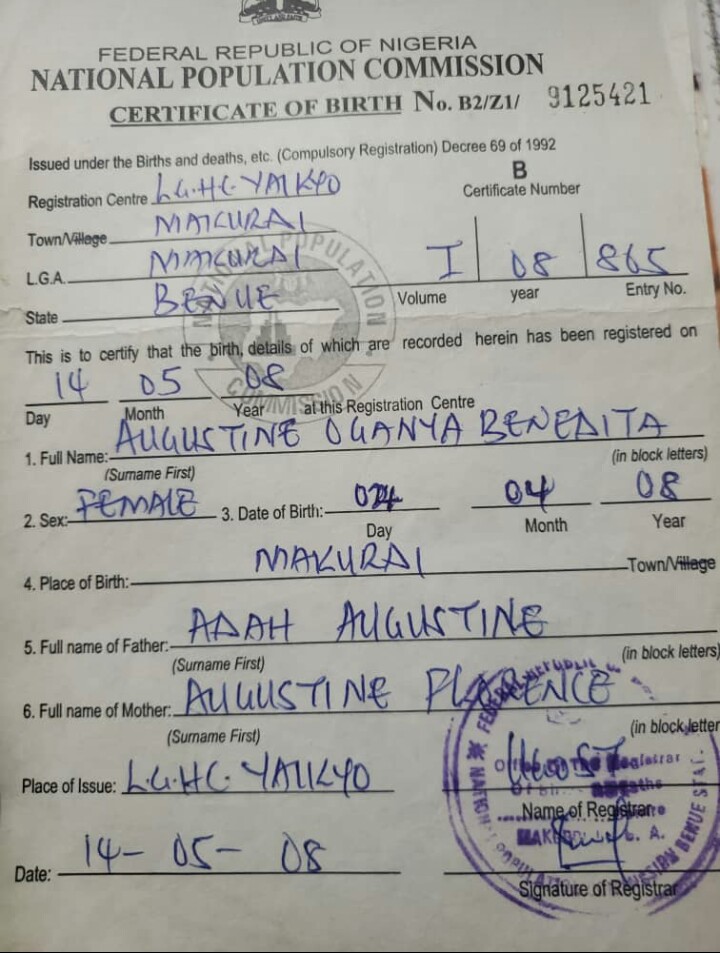 FEDERAL REPUBLIC OF NIGERIA
NATIONAL POPULATION COMMISSION
CERTIFICATE OF BIRTH No. B2/Z1/ 9125421
Issued under the Births and deaths, etc. (Compulsory Registration) Decree 69 of 1992
B
Registration Centre L.G.H.C. YAIKYO
Certificate Number
Town/Village MAKURDI
L.G.A. MAKURDI
I 08 865
State BENUE
Volume year Entry No.
NATIONAL POPULATION COMMISSION
This is to certify that the birth, details of which are recorded herein has been registered on
14 05 08
Day Month Year at this Registration Centre
1. Full Name: AUGUSTINE OGANYA BENEDITA
(Surname First) (in block letters)
2. Sex: FEMALE 3. Date of Birth: 04 08
Day Month Year
4. Place of Birth: MAKURDI Town/Village
5. Full name of Father: ADAH AUGUSTINE
(Surname First) (in block letters)
6. Full name of Mother: AUGUSTINE FLORENCE
(Surname First) (in block letter
Place of Issue: L.G.H.C. YAIKYO
Name of Registrar
Date: 14-05-08
Signature of Registrar